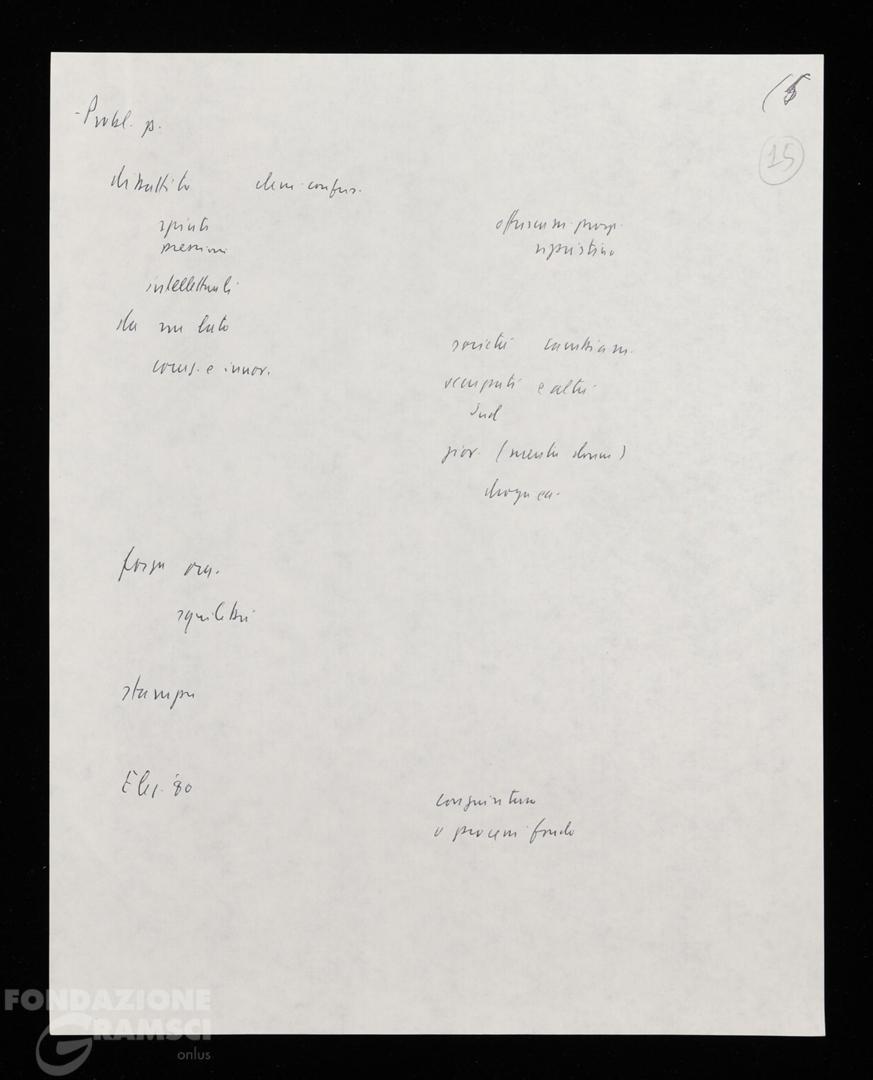 (6
15
- Probl. p.
dibattito elem. confus.
spinte
pressioni
offuscam. prosp.
ripristino
intellettuali
da un lato
cons. e innov.
società cambiam.
occupati e altri
Sud
giov. (mentre donne)
droga ecc.
forza org.
squilibri
stampa
Elez. '80
congiuntura
o processi fondo
FONDAZIONE
GRAMSCI
onlus